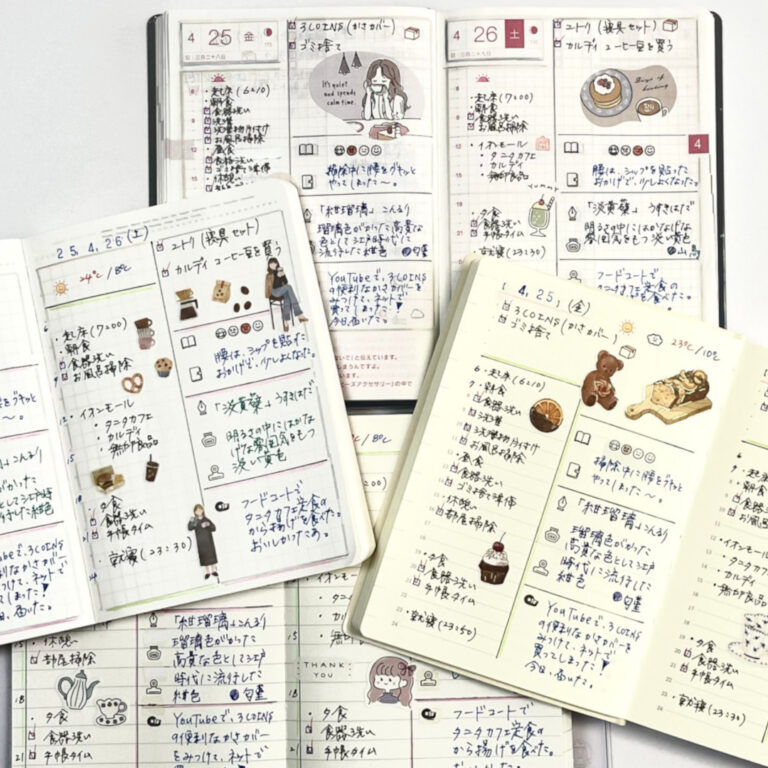 4 25 金
旧三月二十八日
3COINS (かさカバー)
ゴミ捨て
・起床 (6:10)
・朝食
食器洗い
洗濯
洗濯物片付け
お風呂掃除
・昼食
食器洗い
ゴミ捨て準備
・休憩
It's quiet
and spendy
calm time.
掃除中に腰をグキッと
やってしまった〜。
「紺瑠璃」こんるり
瑠璃色がかった高貴な
色として江戸時代に
流行した紺色
YouTubeで、3COINS
の便利なかさカバーを
みつけて、ネットで
買ってしまった!
今日、届いた。
4 26 土
旧三月二十九日
ニトリ (寝具セット)
カルディ コーヒー豆を買う
・起床 (7:00)
・朝食
食器洗い
お風呂掃除
・イオンモール
・タニタカフェ
・カルディ
・無印良品
YUMMY
・夕食
食器洗い
手帳タイム
・就寝 (23:30)
4
腰は、シップを貼った
おかげで、少しよくなった。
「淡黄蘗」うすきはだ
明るさの中にはかなげな
雰囲気をもつ淡い黄色
フードコートで
タニタカフェ定食の
から揚げを食べた。
25, 4, 26 (土)
24℃ / 8℃
ニトリ (寝具セット)
カルディ コーヒー豆を買う
・起床 (7:00)
・朝食
食器洗い
お風呂掃除
・イオンモール
・タニタカフェ
・カルディ
・無印良品
・夕食
食器洗い
手帳タイム
・就寝 (23:30)
腰は、シップを貼った
おかげで、少しよくなった。
「淡黄蘗」うすきはだ
明るさの中にはかな
げな雰囲気をもつ
淡い黄色
フードコートで
タニタカフェ定食の
から揚げを食べた。
おいしかったなあ。
4, 25, (金)
3COINS (かさカバー)
ゴミ捨て
23℃ / 10℃
・起床 (6:10)
・朝食
食器洗い
洗濯
洗濯物片付け
お風呂掃除
・昼食
食器洗い
ゴミ捨て準備
・休憩
部屋掃除
・夕食
食器洗い
手帳タイム
・就寝 (23:50)
掃除中に腰をグキッと
やってしまった〜。
「紺瑠璃」こんるり
瑠璃色がかった
高貴な色として江戸
時代に流行した
紺色
YouTubeで、3COINS
の便利なかさカバーを
みつけて、ネットで
買ってしまった!
今日、届いた。
・イオンモール
・タニタカフェ
・カルディ
・無印良品
・夕食
食器洗い
手帳タイム
・就寝 (23:30)
・休憩
部屋掃除
・夕食
食器洗い
手帳タイム
「紺瑠璃」こんるり
瑠璃色がかった
高貴な色として江戸
時代に流行した
紺色
YouTubeで、3COINS
の便利なかさカバー
をみつけて、ネットで
・イオンモール
THANK
YOU
・夕食
食器洗い
手帳タイム
フードコートで
タニタカフェ定食の
から揚げを食べた。